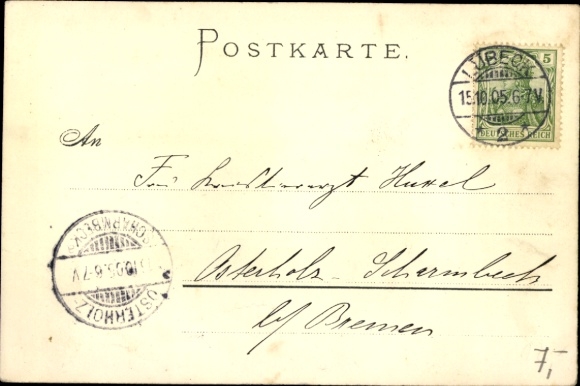 POSTKARTE.
5
LÜBECK
15.10.05.6-7V.
* 2 *
DEUTSCHES REICH
An
Frau Kreistierarzt
Osterholz-Scharmbeck
b/ Bremen
OSTERHOLZ-SCHARMBECK
.10.05.6-7V
7,-